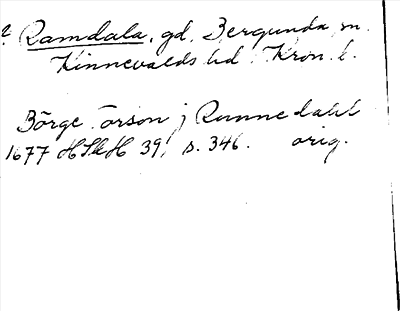 ? Ramdala, gd, Bergunda sn.
Kinnevalds hd. Kron. l.
Börge Örson j Runnedahl
1677 HSkH 39, s. 346. orig.